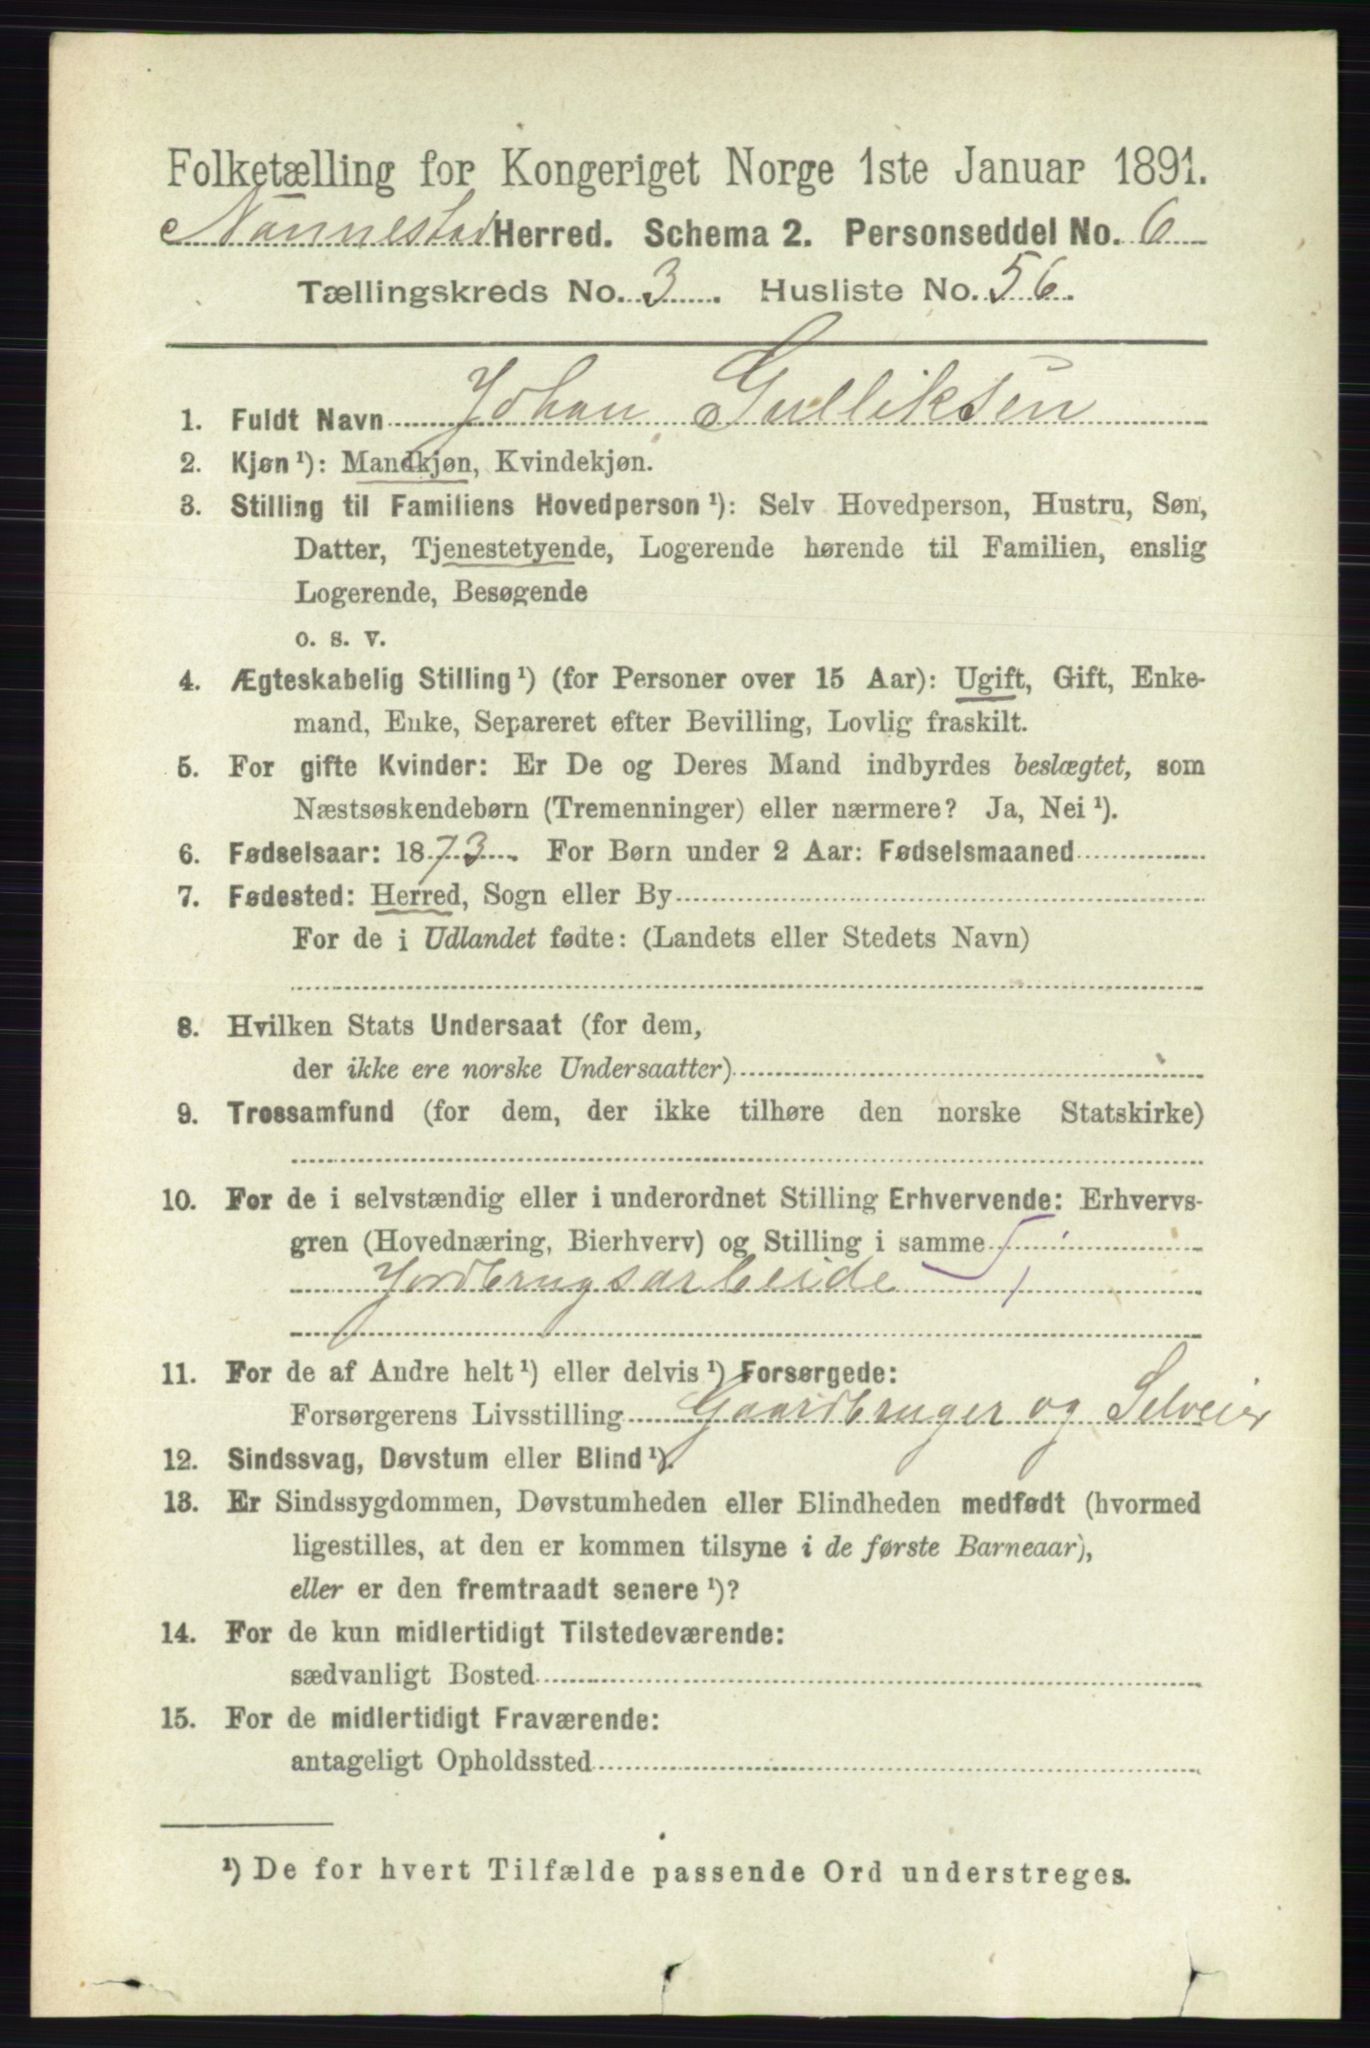 Folketælling for Kongeriget Norge 1ste Januar 1891.
Nannestad Herred. Schema 2. Personseddel No. 6
Tællingskreds No. 3. Husliste No. 56.
1. Fuldt Navn Johan Gulliksen
2. Kjøn¹): Mandkjøn, Kvindekjøn.
3. Stilling til Familiens Hovedperson¹): Selv Hovedperson, Hustru, Søn,
Datter, Tjenestetyende, Logerende hørende til Familien, enslig
Logerende, Besøgende
o. s. v.
4. Ægteskabelig Stilling¹) (for Personer over 15 Aar): Ugift, Gift, Enke-
mand, Enke, Separeret efter Bevilling, Lovlig fraskilt.
5. For gifte Kvinder: Er De og Deres Mand indbyrdes beslægtet, som
Næstsøskendebørn (Tremenninger) eller nærmere? Ja, Nei¹).
6. Fødselsaar: 1873. For Børn under 2 Aar: Fødselsmaaned
7. Fødested: Herred, Sogn eller By
For de i Udlandet fødte: (Landets eller Stedets Navn)
8. Hvilken Stats Undersaat (for dem,
der ikke ere norske Undersaatter)
9. Trossamfund (for dem, der ikke tilhøre den norske Statskirke)
10. For de i selvstændig eller i underordnet Stilling Erhvervende: Erhvervs-
gren (Hovednæring, Bierhverv) og Stilling i samme
Jordbrugsarbeide
11. For de af Andre helt¹) eller delvis¹) Forsørgede:
Forsørgerens Livsstilling Gaardbruger og Selveier
12. Sindssvag, Døvstum eller Blind¹).
13. Er Sindssygdommen, Døvstumheden eller Blindheden medfødt (hvormed
ligestilles, at den er kommen tilsyne i de første Barneaar),
eller er den fremtraadt senere¹)?
14. For de kun midlertidigt Tilstedeværende:
sædvanligt Bosted
15. For de midlertidigt Fraværende:
antageligt Opholdssted
¹) De for hvert Tilfælde passende Ord understreges.